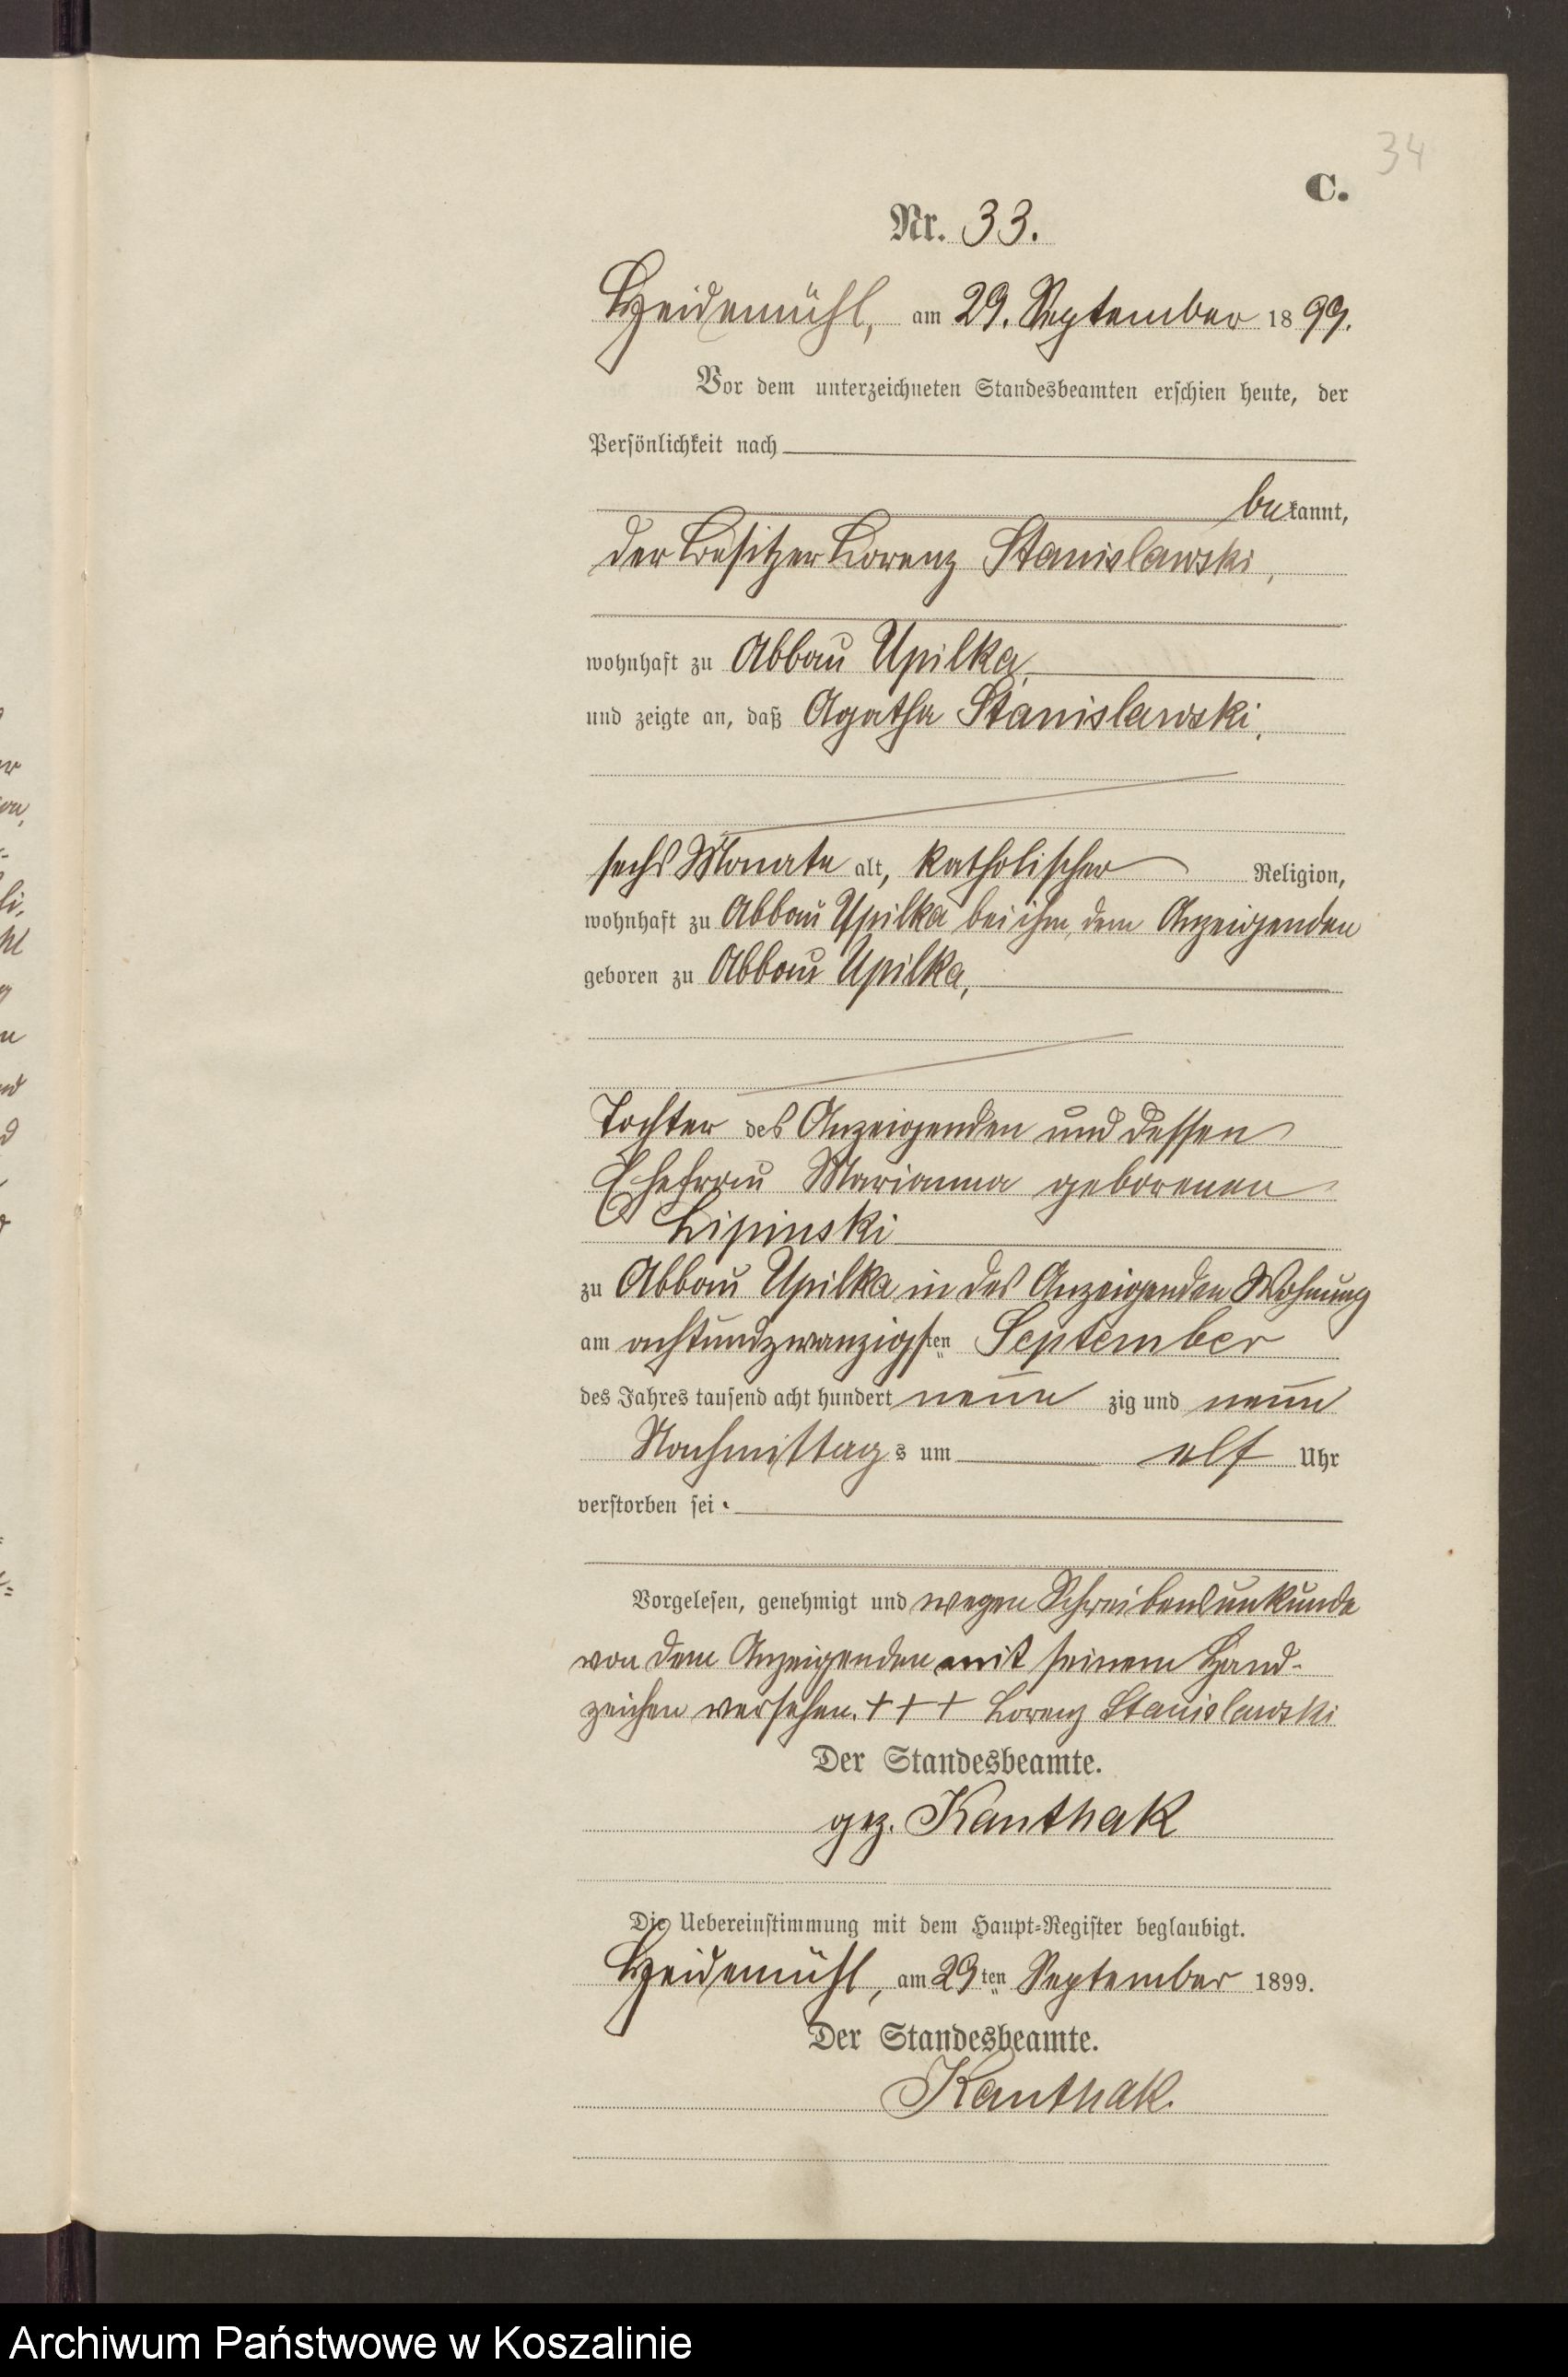 34
C.
Nr. 33.
Heidemühl, am 29. September 1899.
Vor dem unterzeichneten Standesbeamten erschien heute, der
Persönlichkeit nach
bekannt,
der Besitzer Lorenz Stanislawski,
wohnhaft zu Abbau Upilka,
und zeigte an, daß Agatha Stanislawski,
sechs Monate alt, katholischer Religion,
wohnhaft zu Abbau Upilka bei ihm, dem Anzeigenden
geboren zu Abbau Upilka,
Tochter des Anzeigenden und dessen
Ehefrau Marianna geborenen
Lipinski
zu Abbau Upilka in des Anzeigenden Wohnung
am achtundzwanzigsten September
des Jahres tausend acht hundert neun zig und neun
Nachmittags um elf Uhr
verstorben sei.
Vorgelesen, genehmigt und wegen Schreibensunkunde
von dem Anzeigenden mit seinem Hand-
zeichen versehen. + + + Lorenz Stanislawski
Der Standesbeamte.
gez. Kanthak
Die Uebereinstimmung mit dem Haupt-Register beglaubigt.
Heidemühl, am 29ten September 1899.
Der Standesbeamte.
Kanthak.
Archiwum Państwowe w Koszalinie